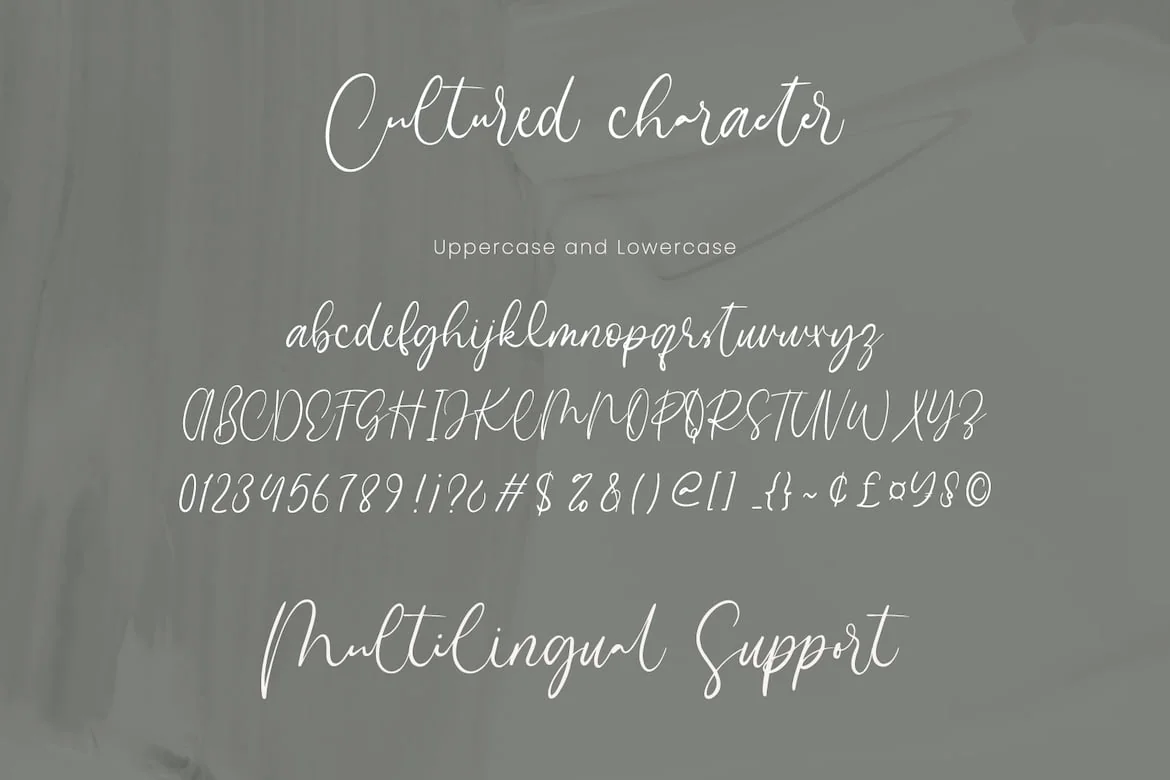 Cultured character
Uppercase and Lowercase
abcdefghijklmnopqrstuvwxyz
ABCDEFGHIJKLMNOPQRSTUVWXYZ
0123456789!¡?¿#$%&()@[]_{}~¢£¤¥§©
Multilingual Support